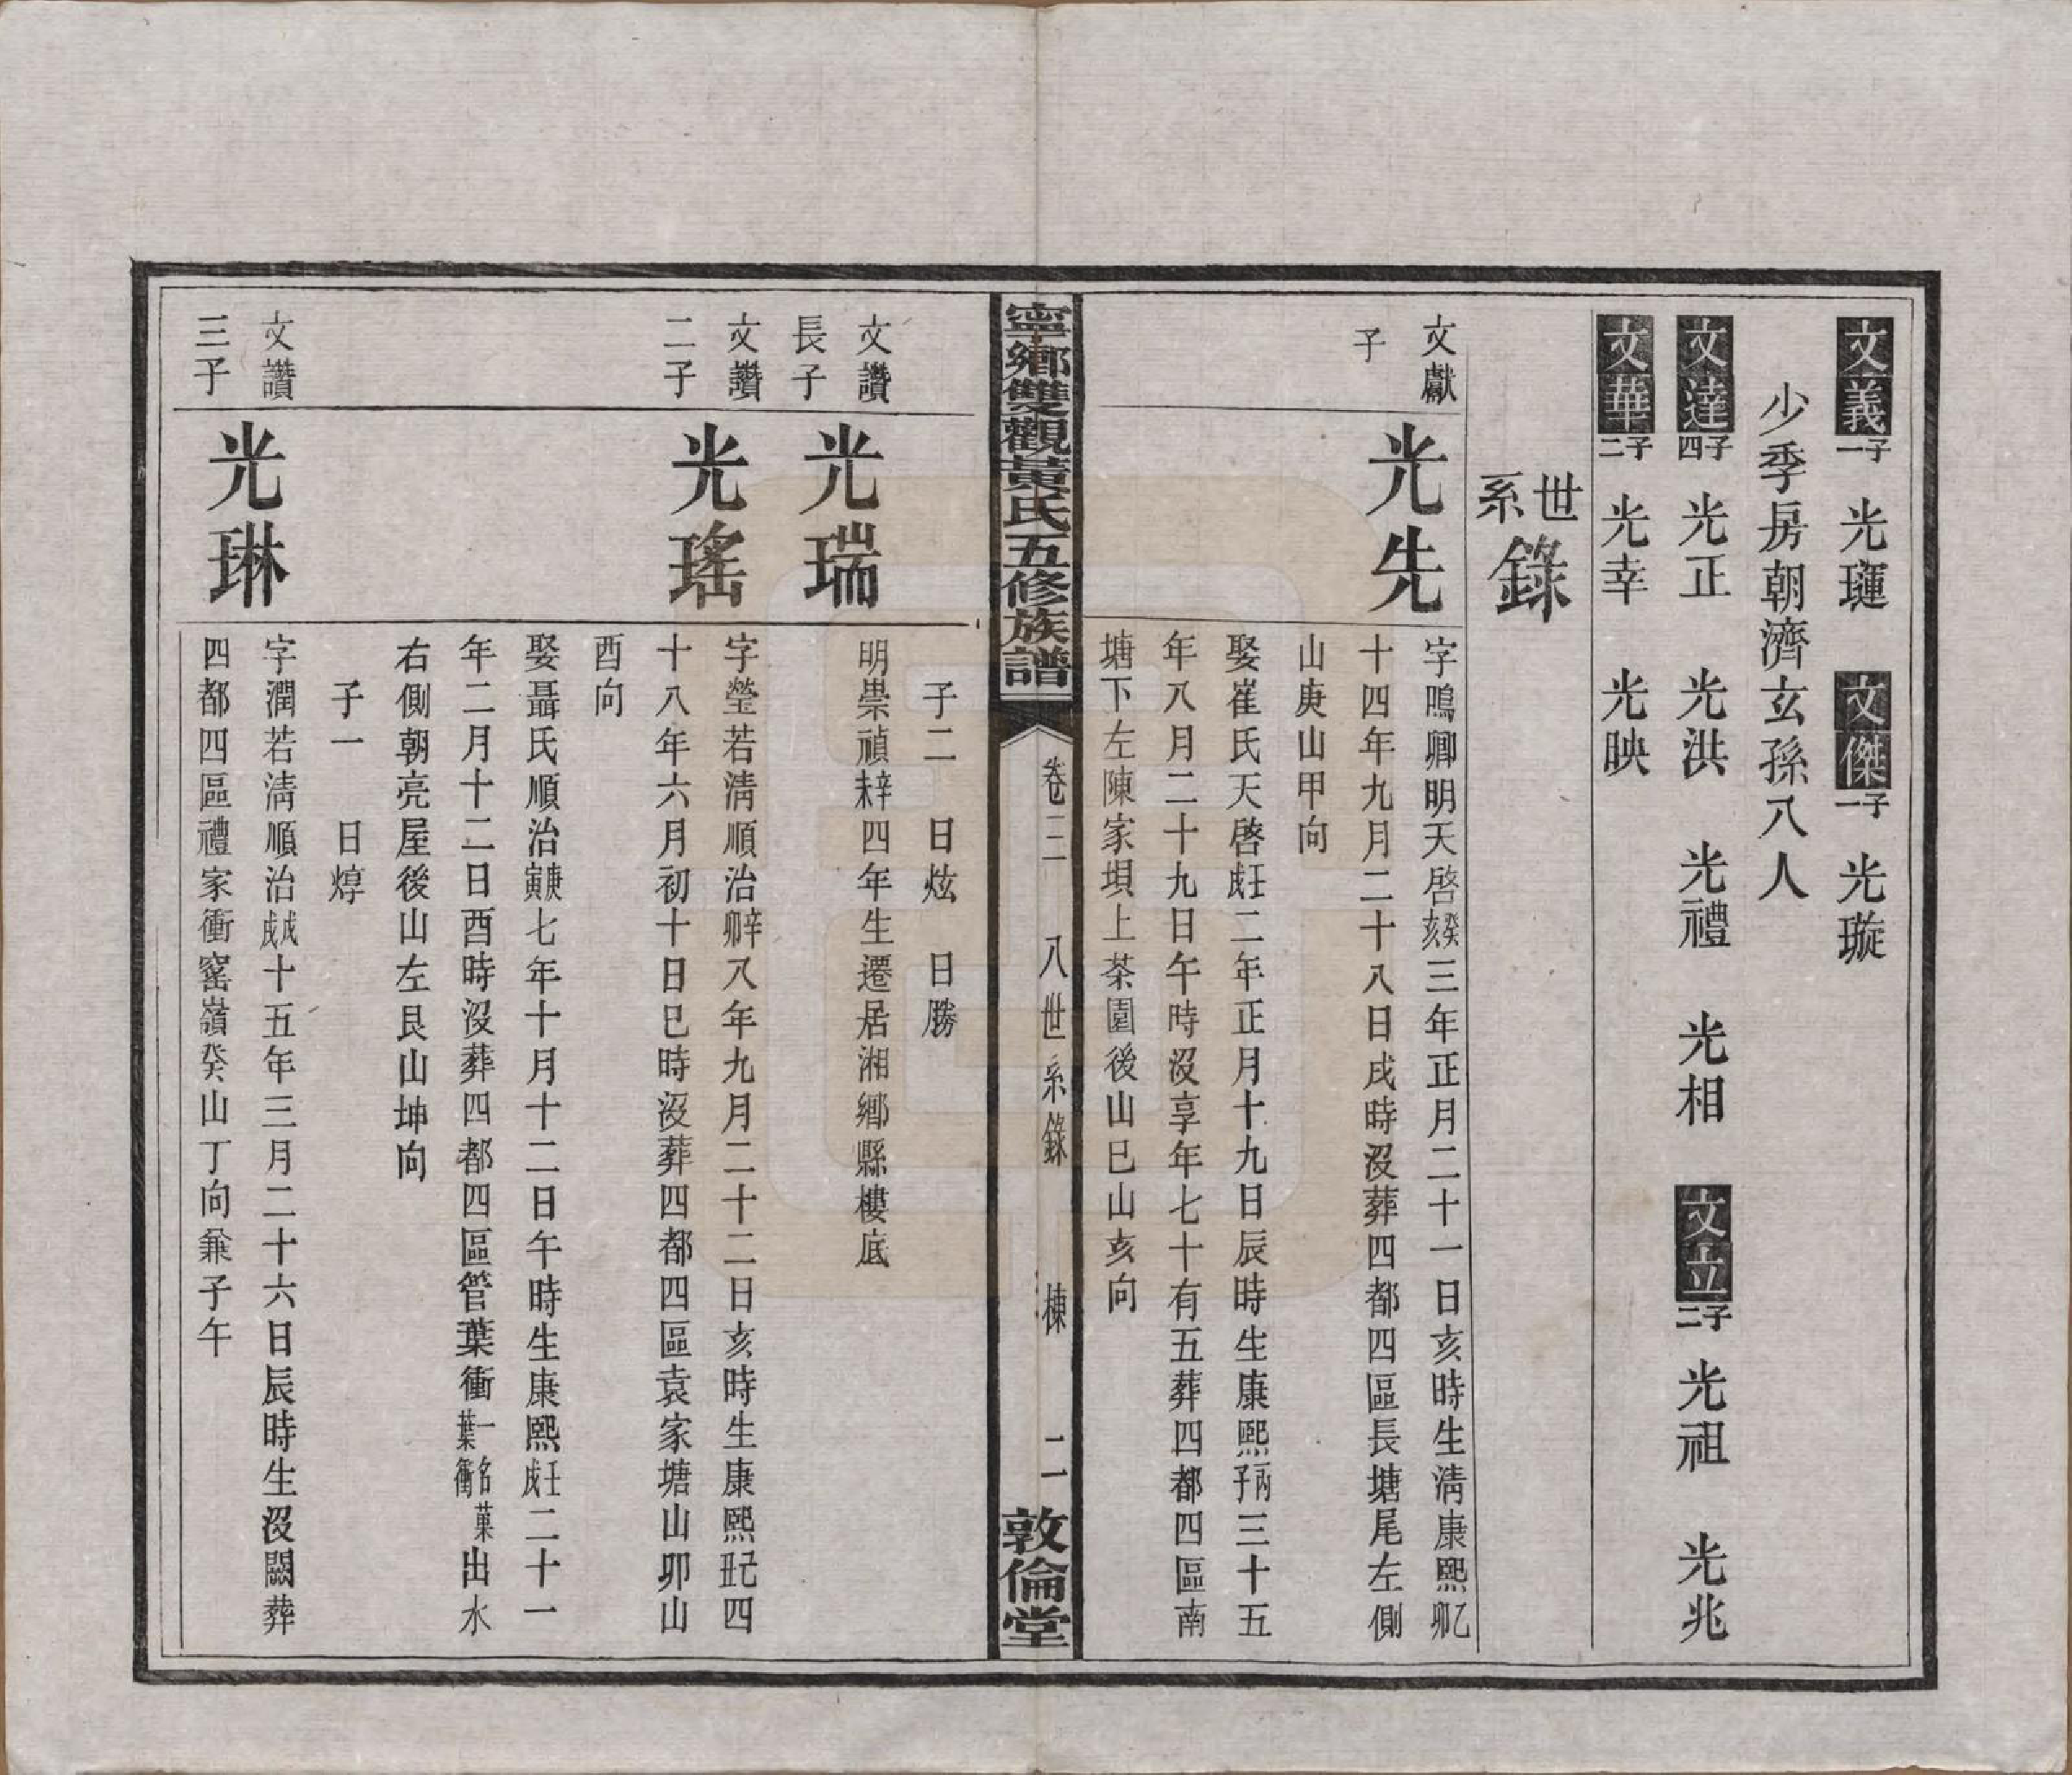 文義子一 光璉 文傑子一 光璇
少季房朝濟玄孫八人
文達子四 光正 光洪 光禮 光相 文立子二 光祖 光兆
文華子二 光幸 光映
世系錄
文獻
子
光先
字鳴卿明天啓癸亥三年正月二十一日亥時生淸康熙乙卯
十四年九月二十八日戌時沒葬四都四區長塘尾左側
山庚山甲向
娶崔氏天啓壬戌二年正月十九日辰時生康熙丙子三十五
年八月二十九日午時沒享年七十有五葬四都四區南
塘下左陳家垻上茶園後山巳山亥向
寧鄉雙觀黃氏五修族譜 卷三 八世系錄 棟 二 敦倫堂
子二 日炫 日勝
文讚
長子
光瑞
明崇禎辛未四年生遷居湘鄉縣樓底
文讚
二子
光瑤
字瑩若淸順治辛卯八年九月二十二日亥時生康熙己丑四
十八年六月初十日巳時沒葬四都四區袁家塘山卯山
酉向
娶聶氏順治庚寅七年十月十二日午時生康熙壬戌二十一
年二月十二日酉時沒葬四都四區管葉衝一名菓葉衝出水
右側朝亮屋後山左艮山坤向
子一 日焞
文讚
三子
光琳
字潤若淸順治戊戌十五年三月二十六日辰時生沒闕葬
四都四區禮家衝窰嶺癸山丁向兼子午